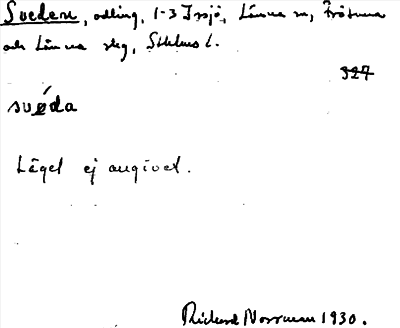 Sveden, odling, 1-3 Insjö, Länna sn, Frötuna
och Länna slg, Sthlms l.
327
svéda
Läget ej angivet.
Richard Norrman 1930.